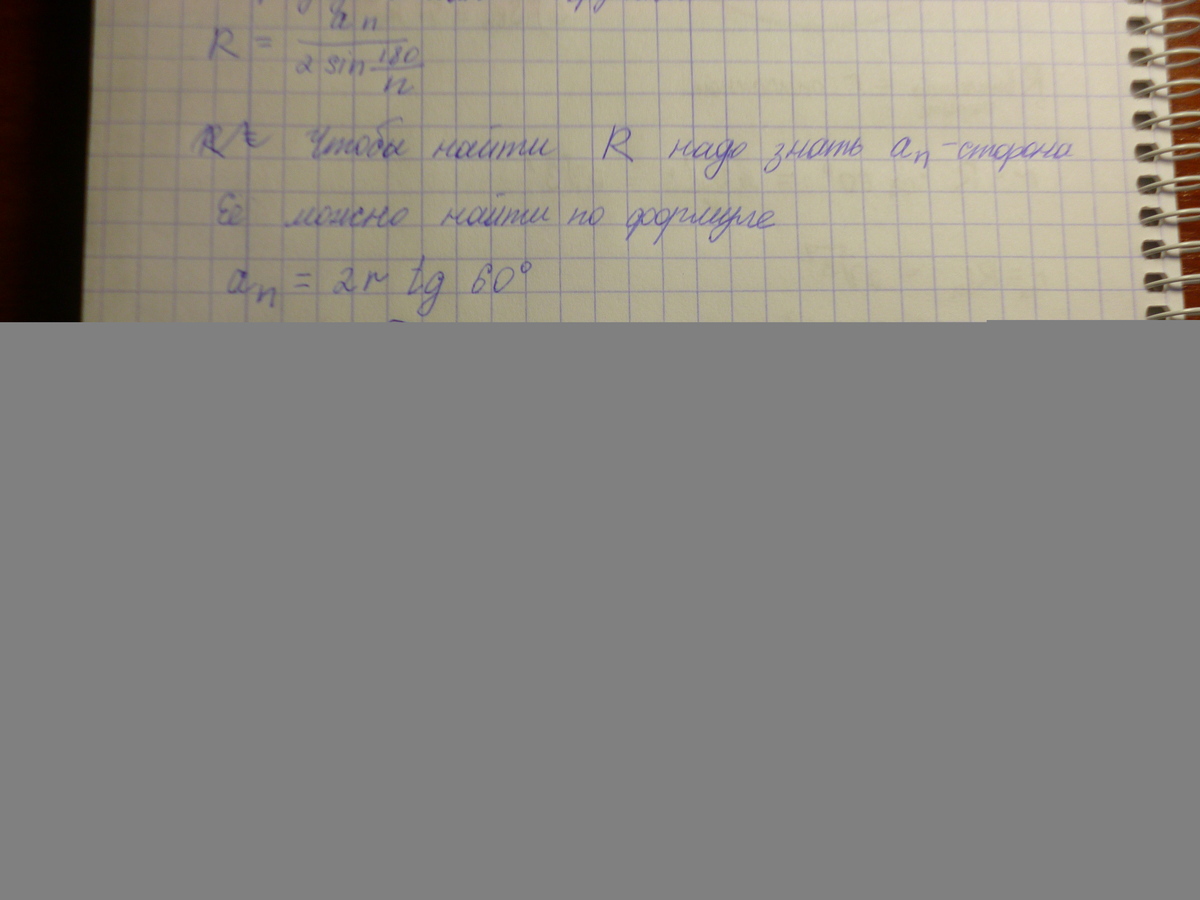 R = aₙ / (2 sin 180/n)
Чтобы найти R надо знать aₙ - сторона
Её можно найти по формуле
aₙ = 2r tg 60°